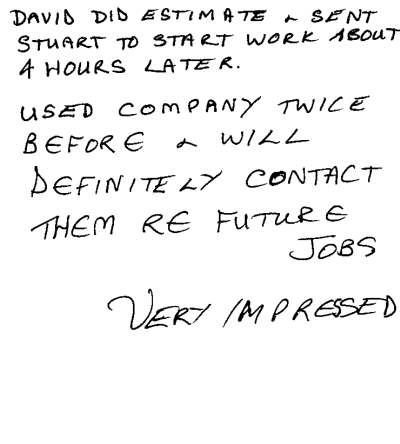 DAVID DID ESTIMATE & SENT
STUART TO START WORK ABOUT
4 HOURS LATER.
USED COMPANY TWICE
BEFORE & WILL
DEFINITELY CONTACT
THEM RE FUTURE
JOBS
VERY IMPRESSED